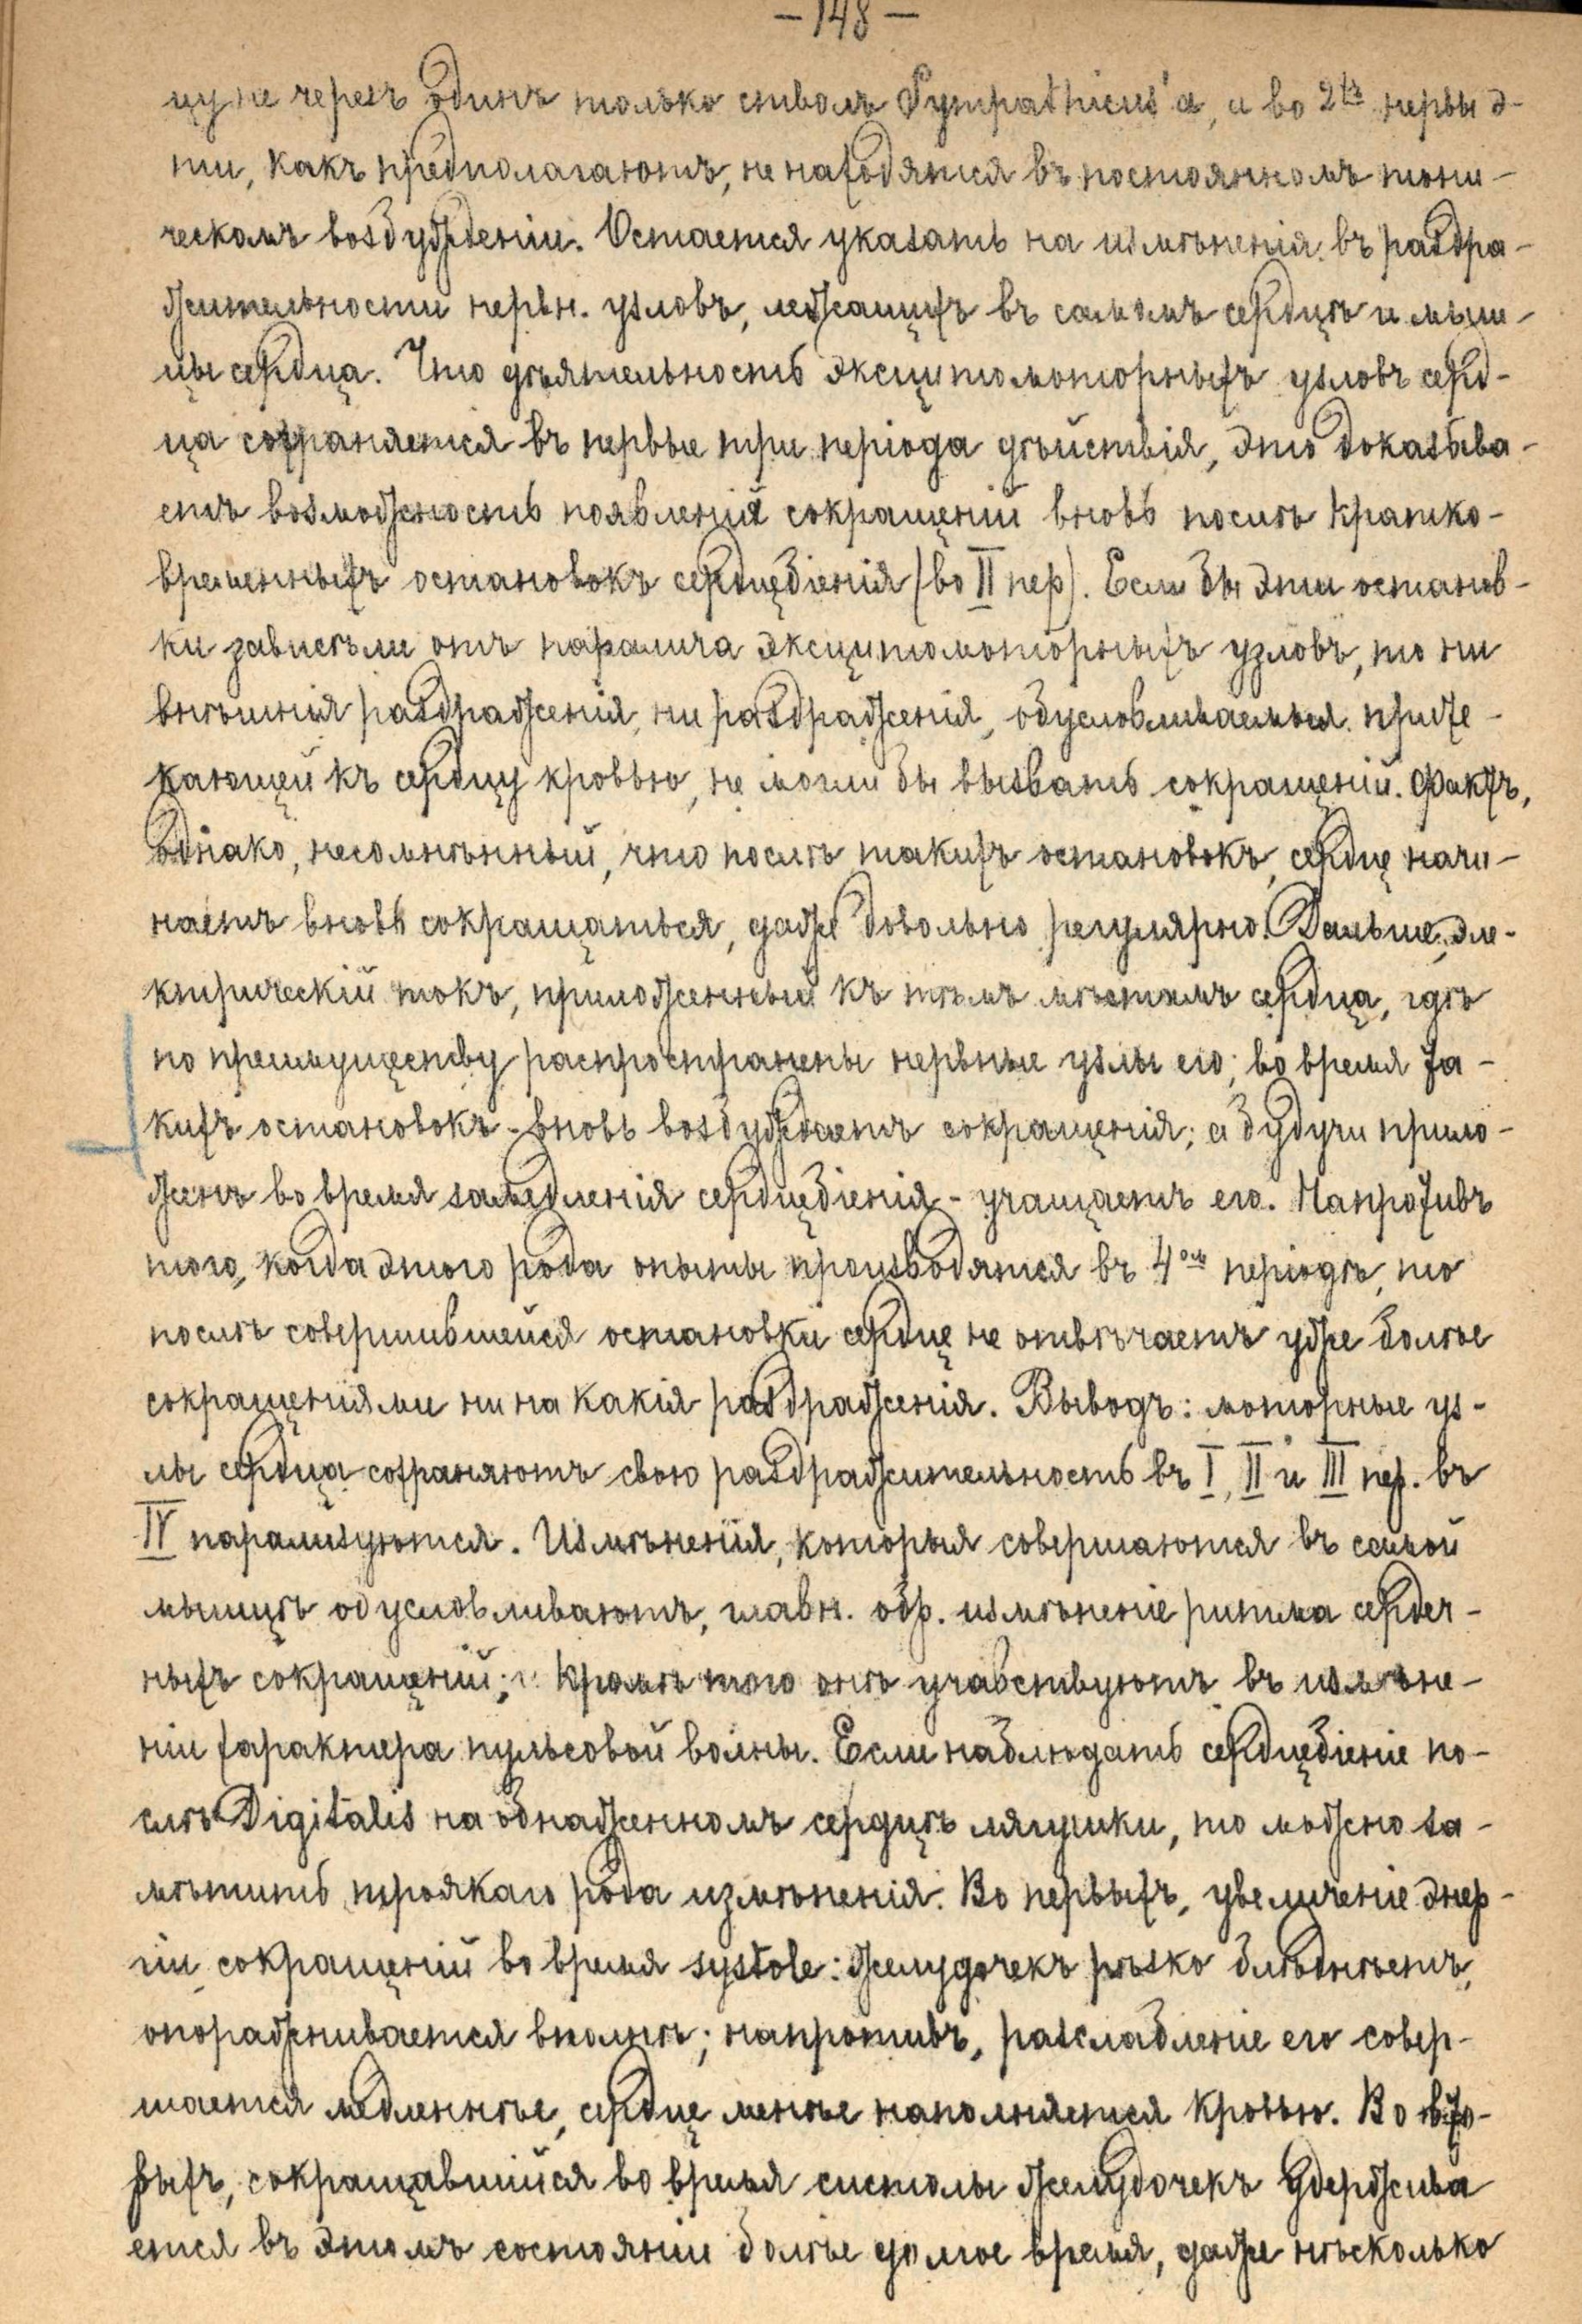 — 148 —
цу не черезъ одинъ только стволъ Sympathicus'a, а во 2хъ нервы э-
ти, какъ предполагаютъ, не находятся въ постоянномъ тони-
ческомъ возбужденіи. Остается указать на измѣненія въ раздра-
жительности нервн. узловъ, лежащихъ въ самомъ сердцѣ и мыш-
цы сердца. Что дѣятельность эксцитомоторныхъ узловъ серд-
ца сохраняется въ первые три періода дѣйствія, это доказыва-
етъ возможность появленія сокращеній вновь послѣ кратко-
временныхъ остановокъ сердцебіенія (во II пер). Если бы эти останов-
ки зависѣли отъ паралича эксцитомоторныхъ узловъ, то ни
внѣшнія раздраженія, ни раздраженія, обусловливаемыя приte-
кающей къ сердцу кровью, не могли бы вызвать сокращеній. Фактъ,
однако, несомнѣнный, что послѣ такихъ остановокъ, сердце начи-
наетъ вновь сокращаться, даже довольно регулярно. Дальше, эле-
ктрическій токъ, приложенный къ тѣмъ мѣстамъ сердца, гдѣ
по преимуществу распространены нервные узлы его, во время та-
кихъ остановокъ - вновь возбуждаетъ сокращенія; а будучи прило-
женъ во время замедленія сердцебіенія - учащаетъ его. Напротивъ
того, когда этого рода опыты производятся въ 4омъ періодѣ, то
послѣ совершившейся остановки сердце не отвѣчаетъ уже болѣе
сокращеніями ни на какія раздраженія. Выводъ: моторные уз-
лы сердца сохраняютъ свою раздражительность въ I, II и III пер. въ
IV парализуются. Измѣненія, которыя совершаются въ самой
мышцѣ обусловливаютъ, главн. обр. измѣненіе ритма сердеч-
ныхъ сокращеній; Кромѣ того онѣ участвуютъ въ измѣне-
ніи характера пульсовой волны. Если наблюдать сердцебіеніе по-
слѣ Digitalis на обнаженномъ сердцѣ лягушки, то можно за-
мѣтить троякаго рода измѣненія. Во первыхъ, увеличеніе энер-
гіи сокращеній во время systole: желудочекъ рѣзко блѣднѣетъ,
опоражнивается вполнѣ; напротивъ, разслабленіе его совер-
шается медленнѣе, сердце менѣе наполняется кровью. Во вто-
рыхъ, сокращавшійся во время систолы желудочекъ удержива
ется въ этомъ состояніи болѣе долгое время, даже нѣсколько